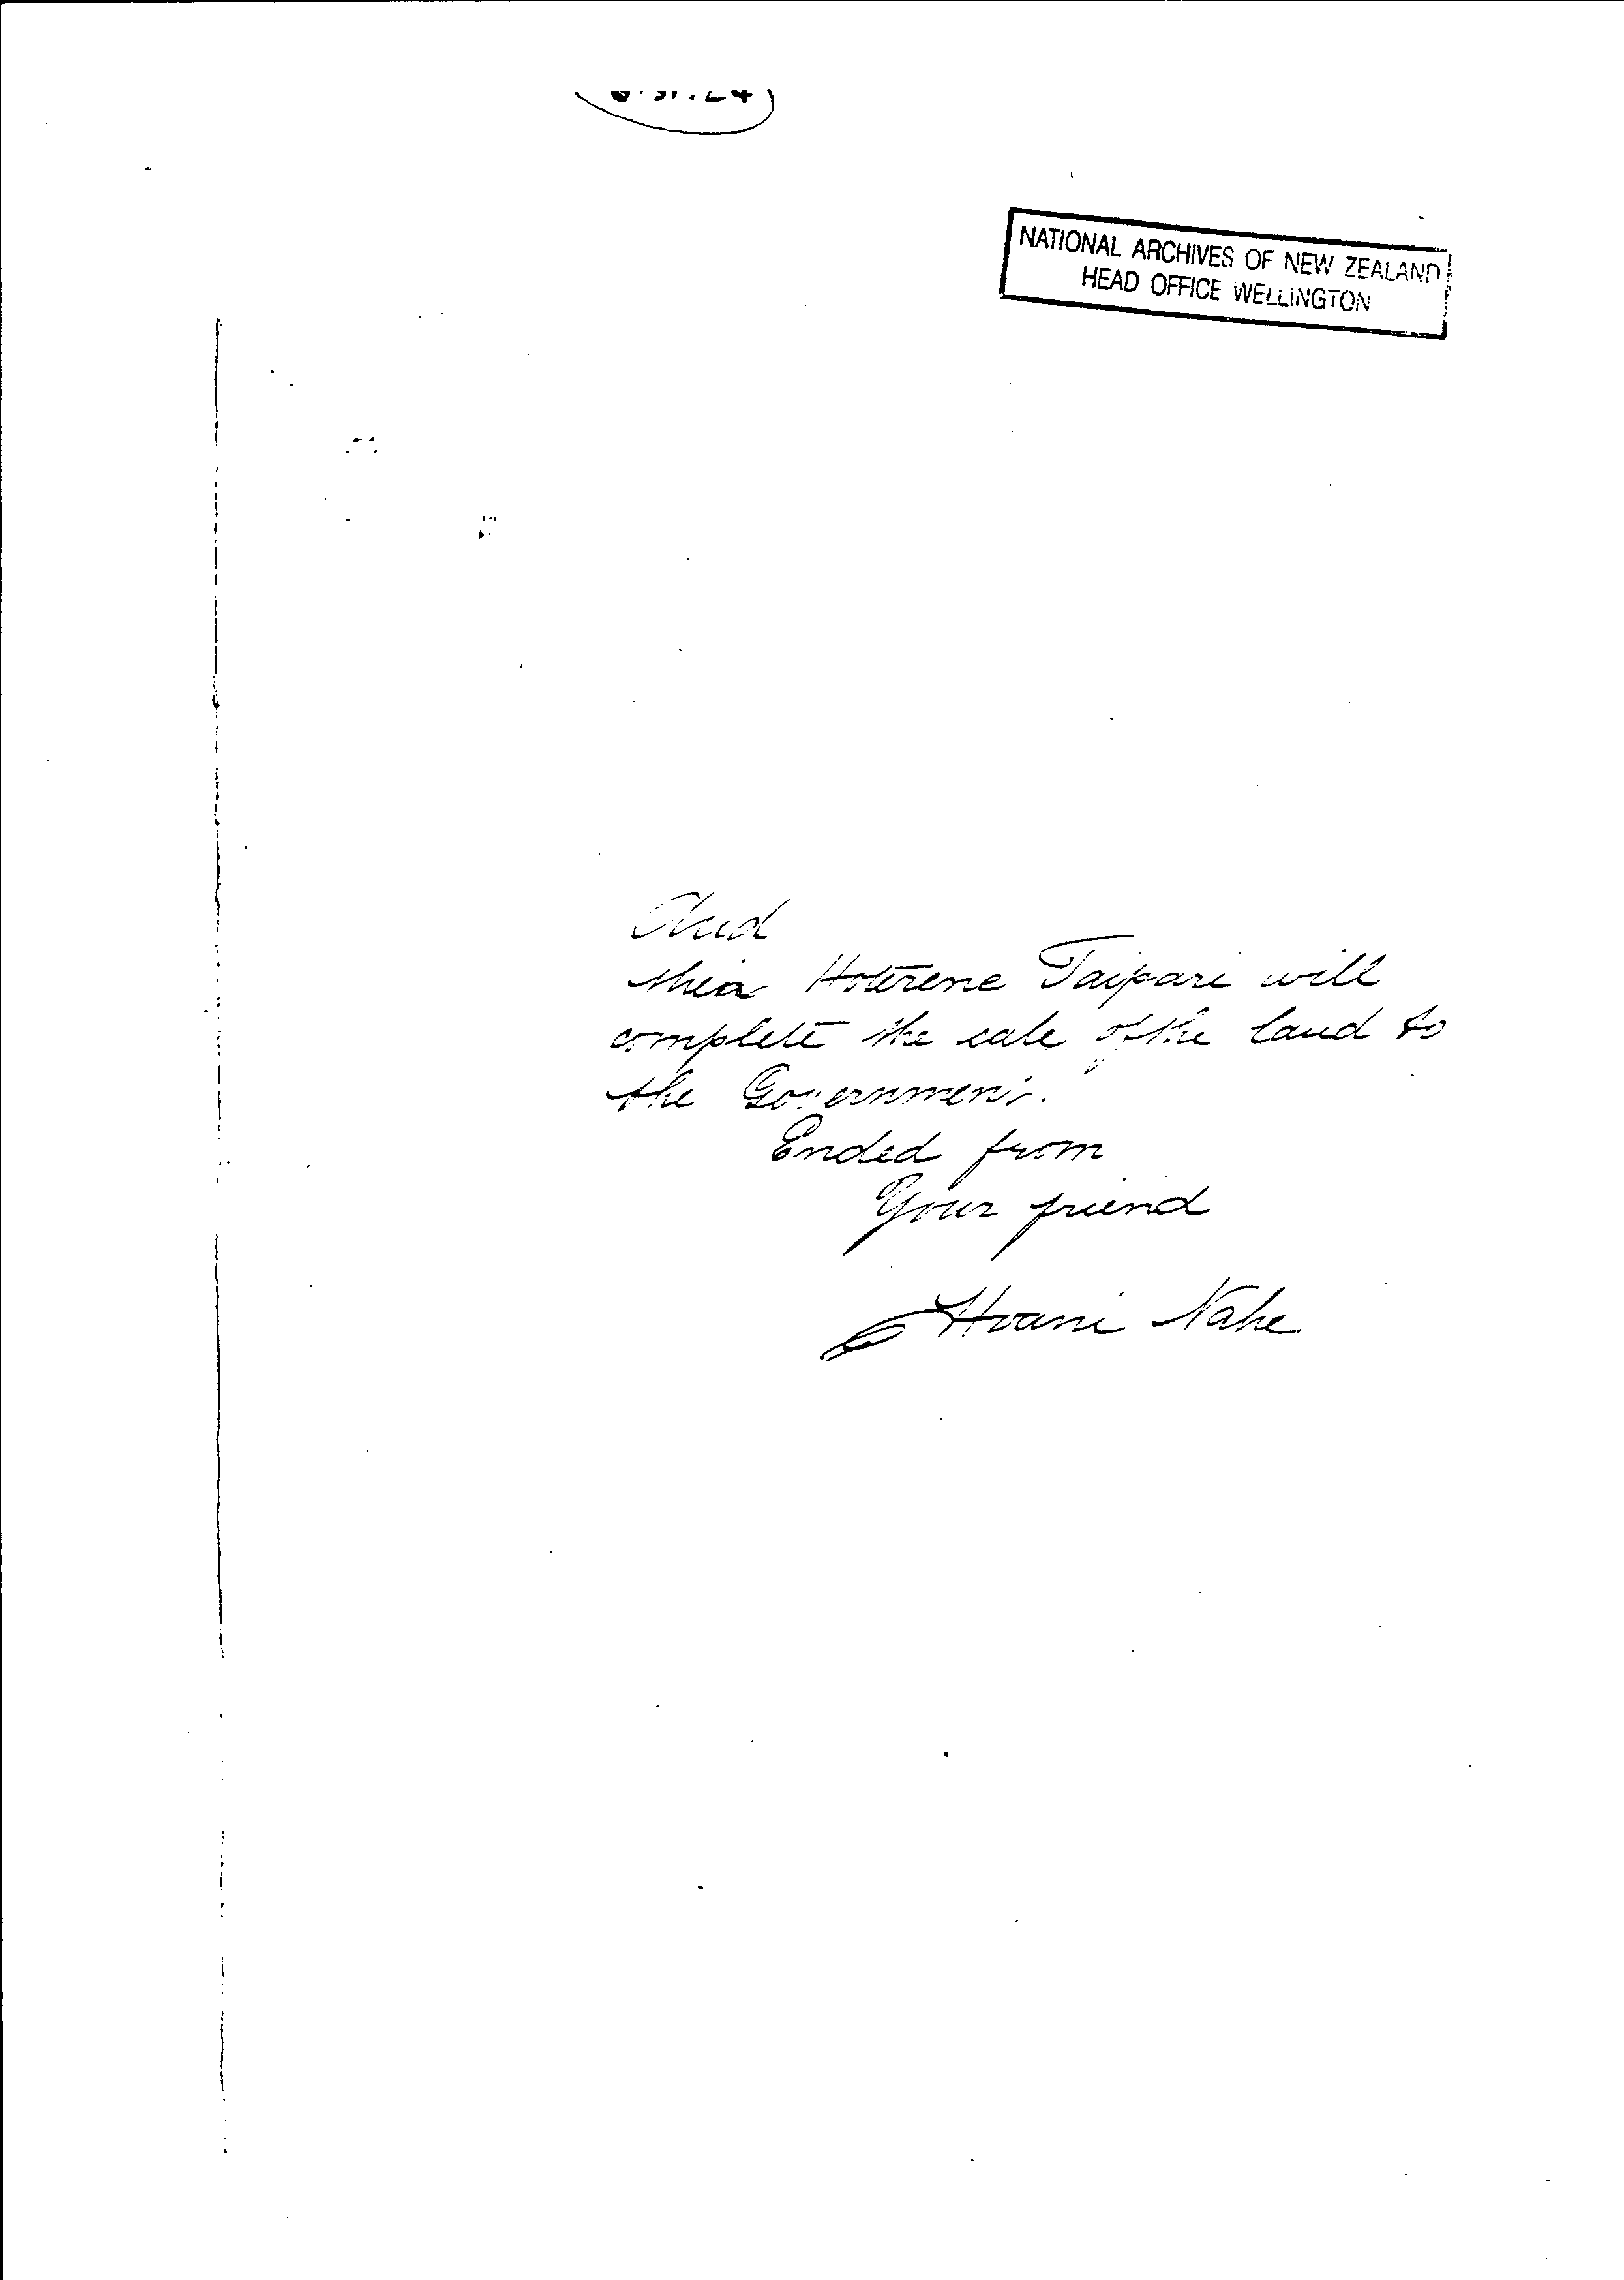 NATIONAL ARCHIVES OF NEW ZEALAND
HEAD OFFICE WELLINGTON
And
then Hoterene Taipari will
complete the sale of the land to
the Government.
Ended from
Your friend
Hoani Nahe